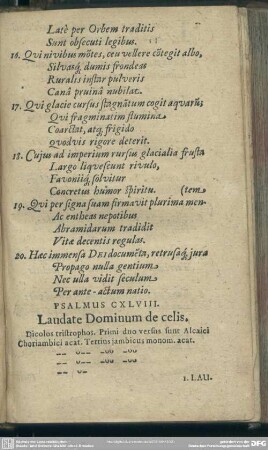 Latè per Orbem traditis
Sunt obsecuti legibus.
16. Qvi nivibus mōtes, ceu vellere cōtegit albo,
Silvasq; dumis frondeas
Ruralis instar pulveris
Canâ pruinâ nubilat.
17. Qvi glacie cursus stagnātum cogit aqvarū;
Qvi fragminatim flumina
Coarctat, atq; frigido
Qvodvis rigore deterit.
18. Cujus ad imperium rursus glacialia frusta
Largo liqvescunt rivulo,
Favoniiq; solvitur
Concretus humor spiritu. (tem
19. Qvi per signa suam firmavit plurima men-
Ac entheas nepotibus
Abramidarum tradidit
Vitæ decentis regulas.
20. Hæc immensa DEI documēta, retrusaq; jura
Propago nulla gentium
Nec ulla vidit seculum
Per ante-actum natio.
PSALMUS CXLVIII.
Laudate Dominum de celis.
Dicolos tristrophos. Primi duo versus sunt Alcaici
Choriambici acat. Tertius jambicus monom. acat.
1. LAU.